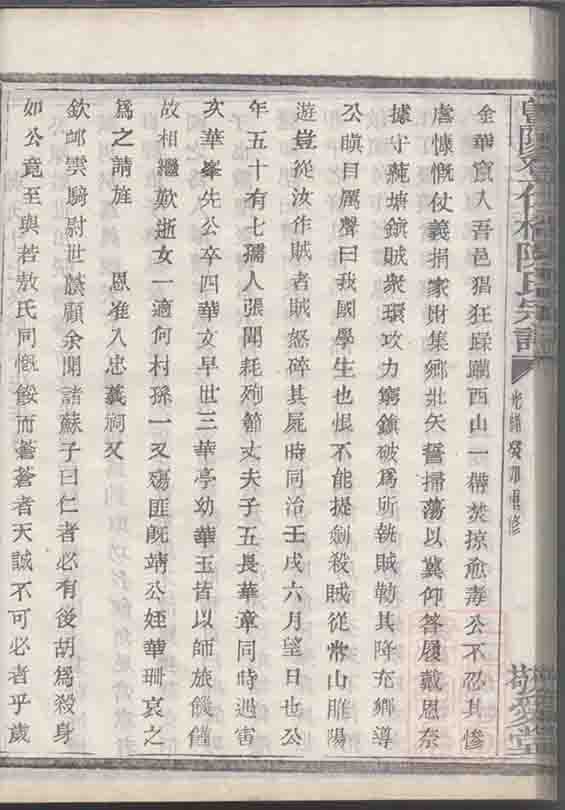 金華竄入吾邑猖狂蹂躪西山一帶焚掠愈毒公不忍其慘
虐慷慨仗義捐家財集鄉壯矢誓掃蕩以冀仰答履戴恩奈
據守蒓塘鎮賊衆環攻力窮鎮破爲所執賊勒其降充鄉導
公瞋目厲聲曰我國學生也恨不能提劍殺賊從常山睢陽
遊豈從汝作賊者賊怒碎其屍時同治壬戌六月望日也公
年五十有七孺人張聞耗殉節丈夫子五長華章同時遇害
次華峯先公卒四華文早世三華亭幼華玉皆以師旅饑饉
故相繼歎逝女一適何村孫一又殤匪旣靖公姪華珊哀之
爲之請旌　恩准入忠義祠又
欽䘏雲騎尉世廕顧余聞諸蘇子曰仁者必有後胡爲殺身
如公竟至與若敖氏同慨餒而蒼蒼者天誠不可必者乎歲
陳氏宗譜
光緒癸卯重修
敬愛堂